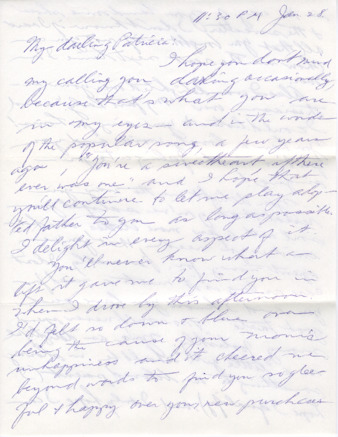 11:30 P.M Jan 28
My darling Patricia:
I hope you don't mind
my calling you darling occasionally,
because that's what you are
in my eyes - and in the words
of the popular song, a few years
ago, "you're a sweetheart if there
ever was one" and I hope that
you'll continue to let me play adop-
ted father to you as long as possible.
I delight in every aspect of it
You'll never know what a
lift it gave me to find you in
when I drove by this afternoon.
I'd felt so down & blue over
being the cause of your mom's
unhappiness and it cheered me
beyond words to find you so glee-
ful & happy over your new purchases